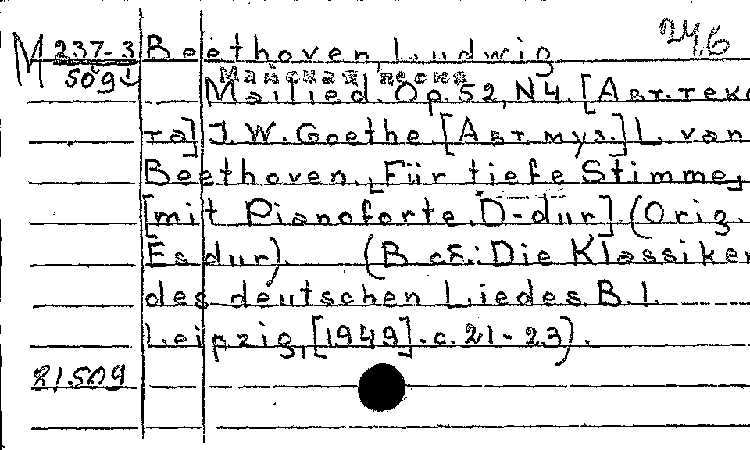 246
М 237-3 Beethoven, Ludwig
509
Майская песня
Mailied. Op. 52, N4. [Авт. текс
та] J. W. Goethe [Авт. муз.] L. van
Beethoven. [Für tiefe Stimme,
[mit Pianoforte. D-dur] (Orig.
Es dur). (В сб.: Die Klassiker
des deutschen Liedes. B. I.
Leipzig, [1949]. с. 21-23).
81.509